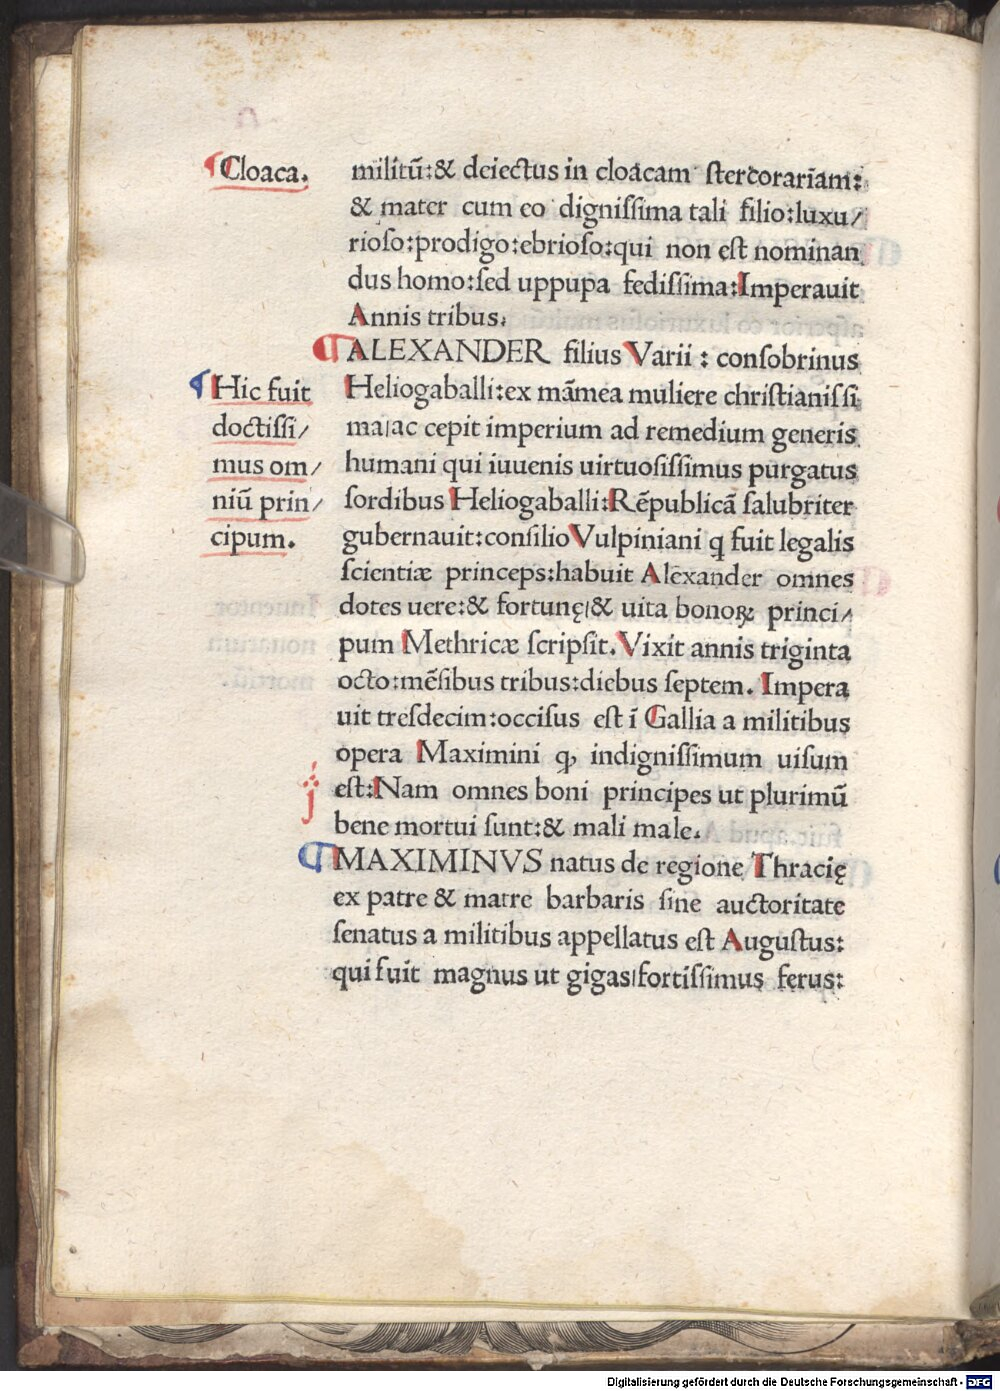 Cloaca.
militū:& deiectus in cloacam stercorariam:
& mater cum eo dignissima tali filio:luxu/
rioso:prodigo:ebrioso:qui non est nominan
dus homo:sed uppupa fedissima:Imperauit
Annis tribus.
ALEXANDER filius Varii : consobrinus
Heliogaballi:ex māmea muliere christianissi
ma/ac cepit imperium ad remedium generis
humani qui iuuenis uirtuosissimus purgatus
sordibus Heliogaballi:Rēpublicā salubriter
gubernauit:consilio Vulpiniani q fuit legalis
scientiæ princeps:habuit Alexander omnes
dotes uere:& fortunę/& uita bonoꝝ princi/
pum Methricæ scripsit. Vixit annis triginta
octo:mēsibus tribus:diebus septem. Impera
uit tresdecim:occisus est ī Gallia a militibus
opera Maximini ꝙ indignissimum uisum
est:Nam omnes boni principes ut plurimū
bene mortui sunt:& mali male.
MAXIMINVS natus de regione Thracię
ex patre & matre barbaris sine auctoritate
senatus a militibus appellatus est Augustus:
qui fuit magnus ut gigas/fortissimus ferus:
Hic fuit
doctissi/
mus om/
niū prin/
cipum.
Digitalisierung gefördert durch die Deutsche Forschungsgemeinschaft - DFG